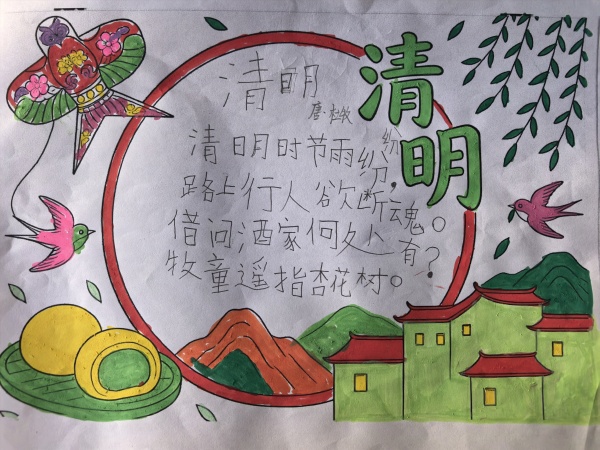 清明
清明
唐
清明时节雨纷纷，
路上行人欲断魂。
借问酒家何处有？
牧童遥指杏花树。